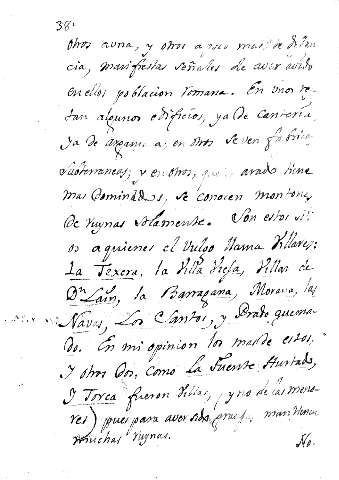 38.
otros auna, y otros a poco mas, de distan
cia, manifiestas señales de aver avido
en ellos poblacion romana. En unos res
tan algunos edificios, ya de canteria,
ya de argamasa; en otros se ven fabricas
subterraneas; y en otros, que el arado tiene
mas dominados, se conocen montones
de ruynas solamente. Son estos siti
os a quienes el vulgo llama Villares:
La Texera, la Villa Vieja, Villar de
Dn Lain, la Barragana, Morana, las
Navas, Los Cantos, y Prado quema
do. En mi opinion los mas de estos,
y otros dos, como la Fuente Hurtado,
y Torca fueron Villas, y no de las meno
res) pues para aver sido mantienen
muchas ruynas.
No